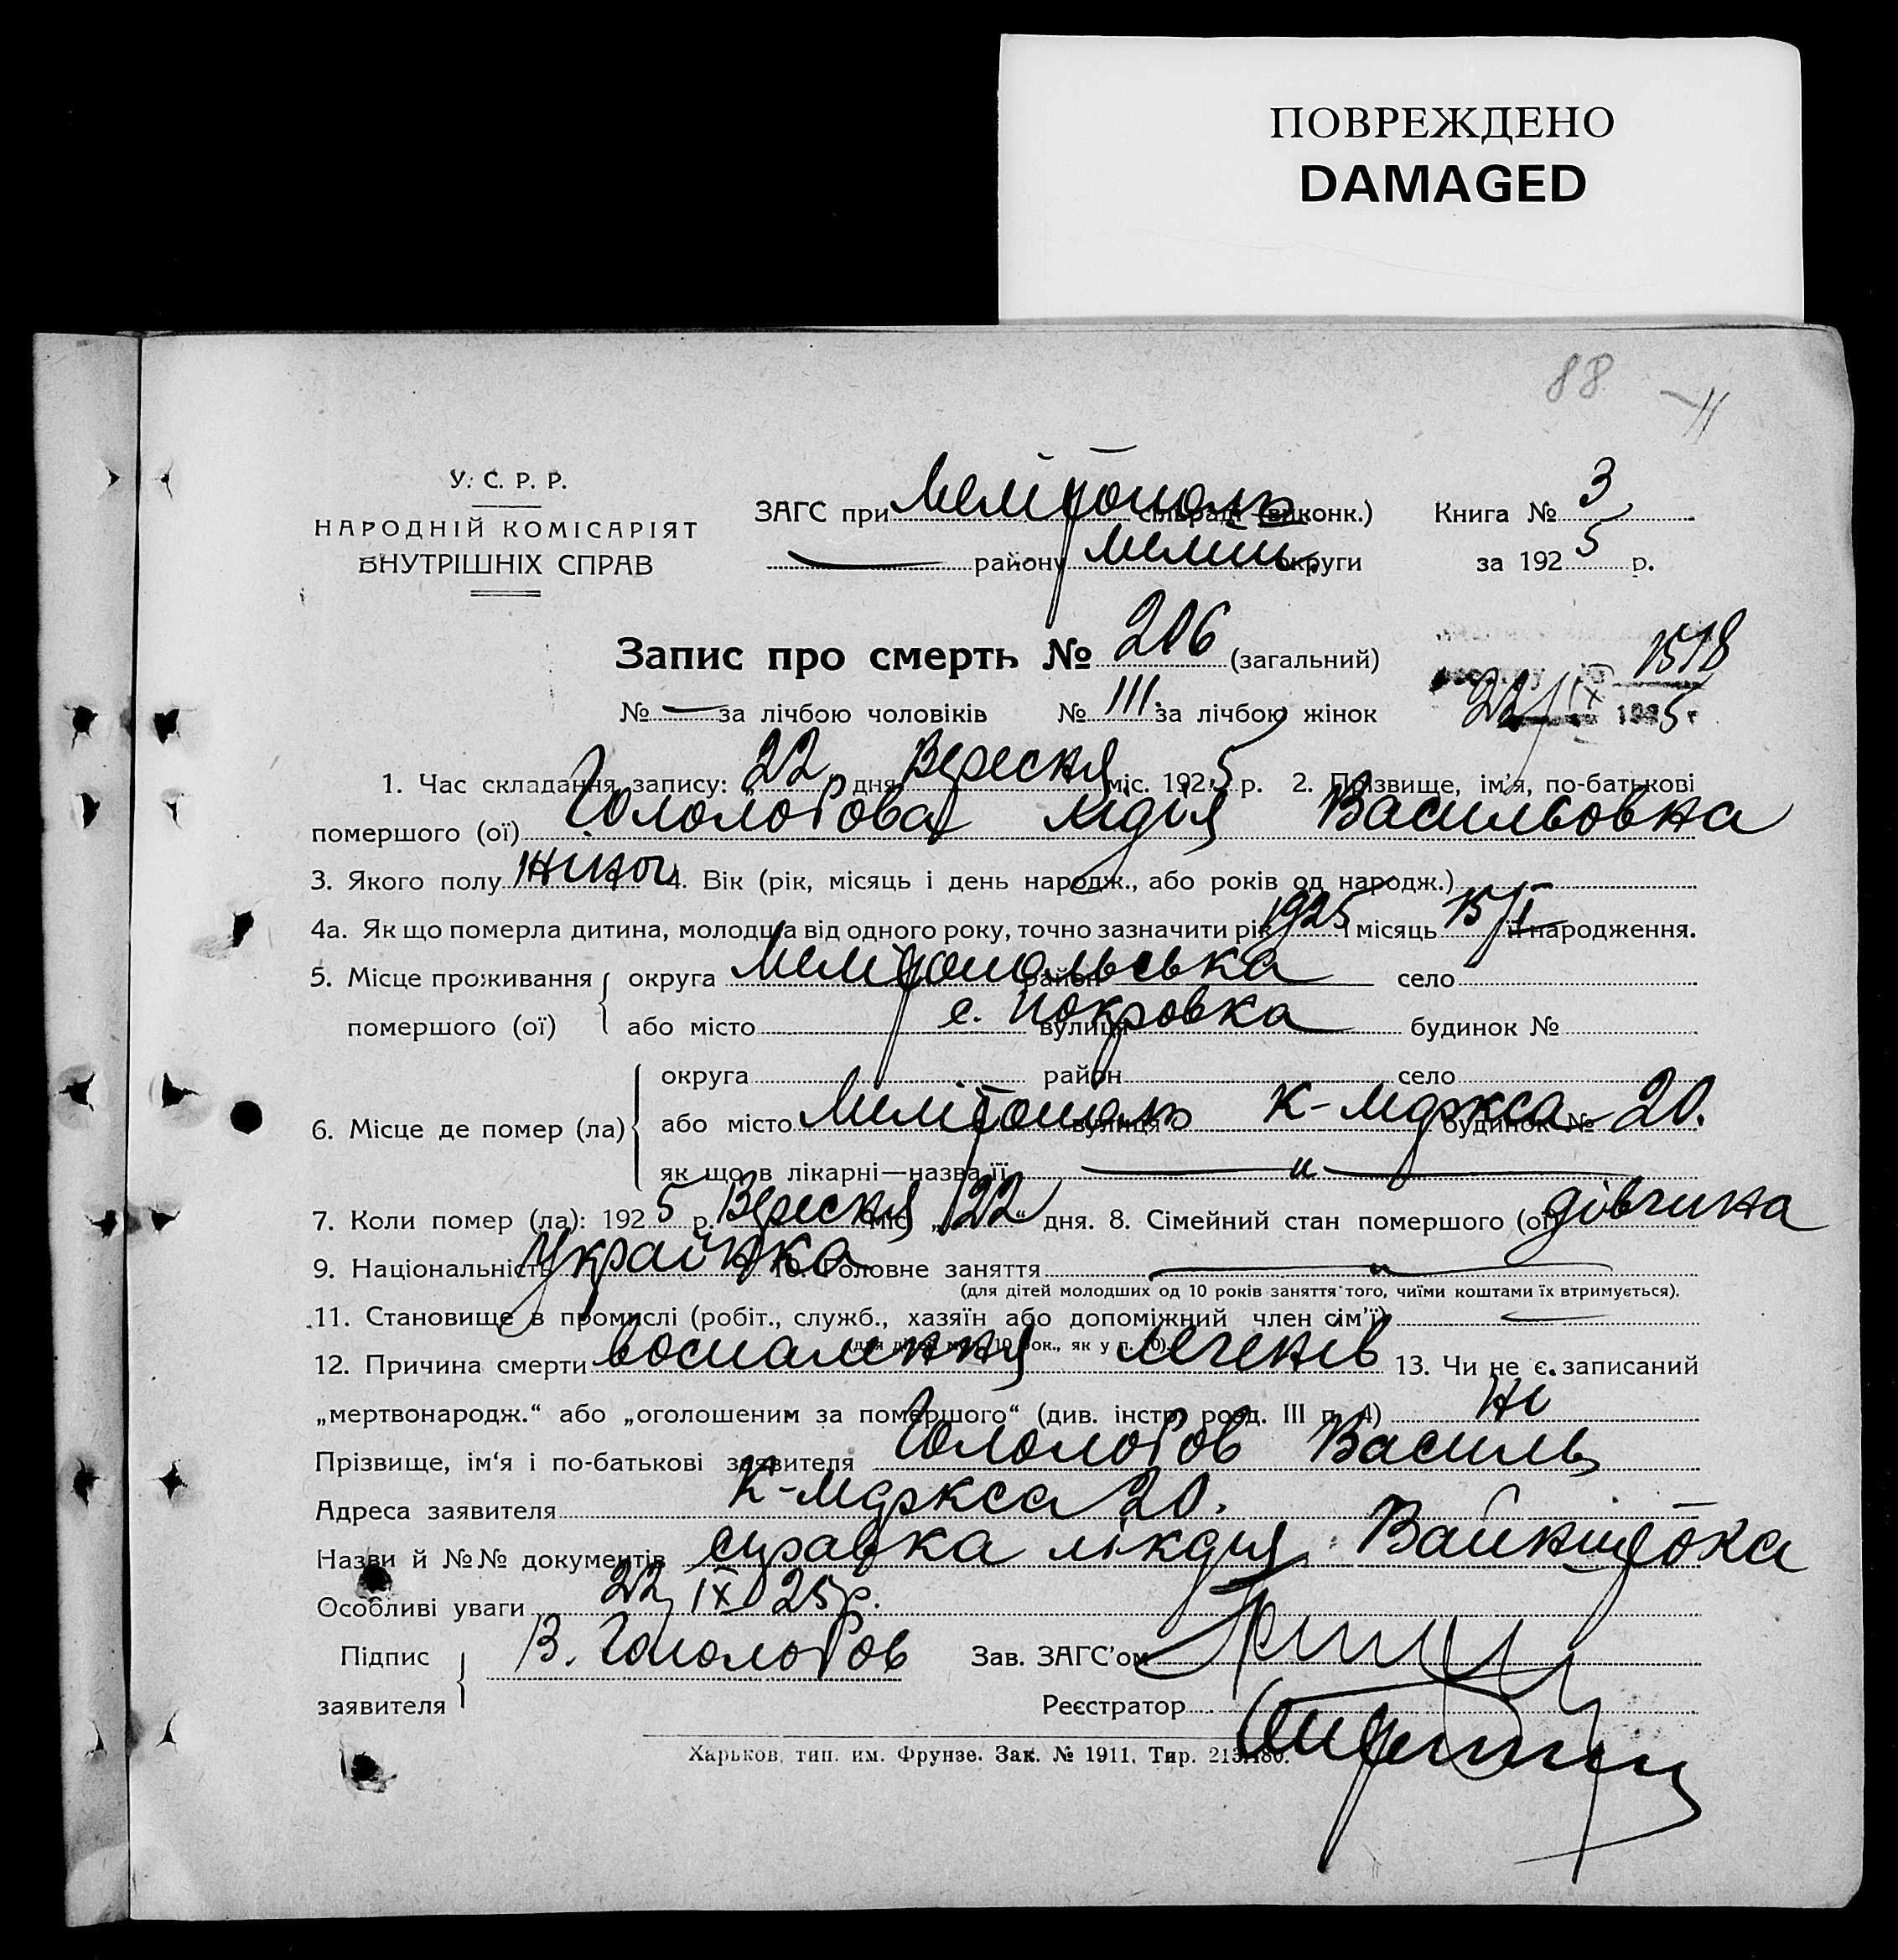 ПОВРЕЖДЕНО
DAMAGED
88
У. С. Р. Р.
НАРОДНІЙ КОМІСАРІЯТ
ВНУТРІШНІХ СПРАВ
ЗАГС при Мелітополь сільраді (виконк.) Книга № 3
— району Мелит. округи за 1925 р.
Запис про смерть № 206 (загальний)
1518
№ — за лічбою чоловіків № 111. за лічбою жінок
22/IX 1925 г
1. Час складання запису: 22 дня Вересня міс. 1925 р. 2. Прізвище, ім'я, по-батькові
помершого (ої) Гололобова Лідія Васильовна
3. Якого полу жіноч 4. Вік (рік, місяць і день народж., або років од народж.)
4а. Як що померла дитина, молодша від одного року, точно зазначити рік 1925 і місяць 15/I її народження.
5. Місце проживання округа Мелітопольська район село
помершого (ої) або місто с. Покровка вулиця будинок №
округа район село
6. Місце де помер (ла) або місто Мелітополь вулиця К-Маркса будинок № 20.
як що в лікарні—назва її — „ —
7. Коли помер (ла): 1925 р. Вересня міс. „22" дня. 8. Сімейний стан помершого (ої) дівчина
9. Національність Українка 10. Головне заняття — „ —
(для дітей молодших од 10 років заняття того, чиїми коштами їх втримується).
11. Становище в промислі (робіт., служб., хазяїн або допоміжний член сім'ї) —
(для дітей мол. 10 рок., як у п. 10).
12. Причина смерти воспалення легенів 13. Чи не є записаний
„мертвонародж.“ або „оголошеним за помершого“ (див. інстр. розд. III п. 4) Ні
Прізвище, ім'я і по-батькові заявителя Гололобов Василь
Адреса заявителя К-Маркса 20.
Назви й №№ документів справка лікаря
Особливі уваги 22 IX 25 р.
Підпис В. Гололобов Зав. ЗАГС'ом
заявителя Реєстратор
Харьков, тип. им. Фрунзе. Зак. № 1911. Тир. 213.180.